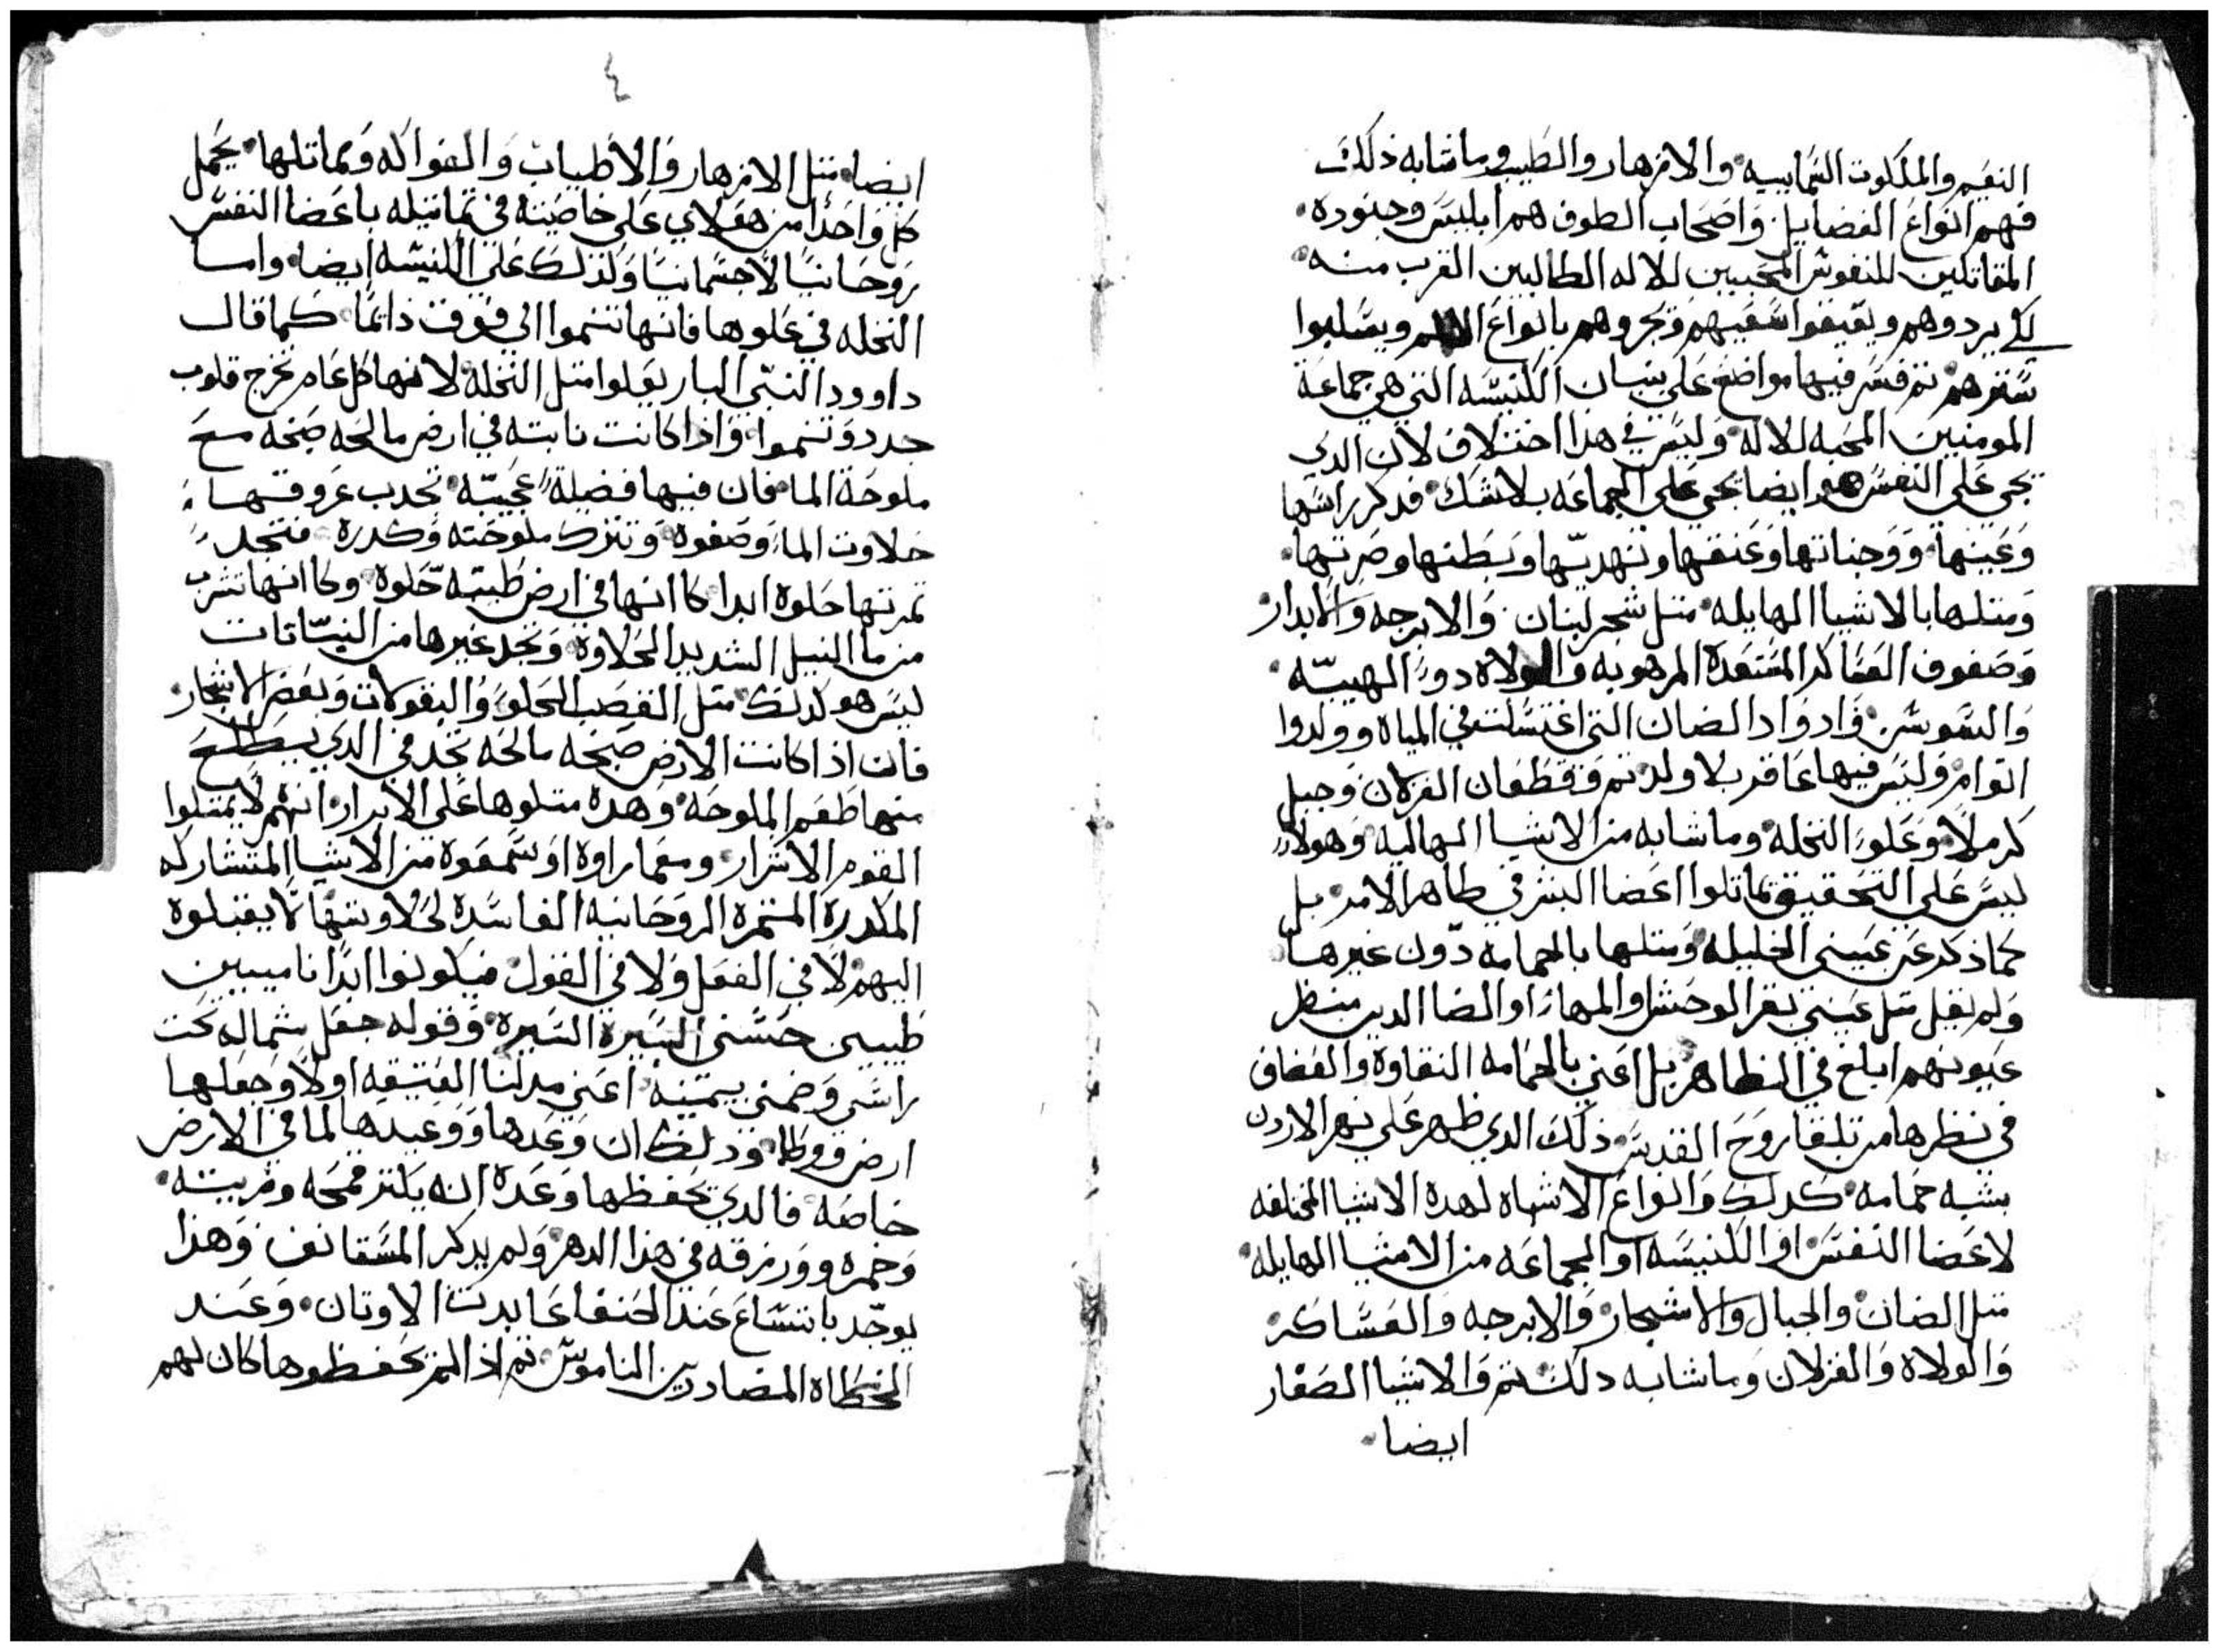 النعيم والملكوت السماييه والازهار والطيب وما شابه ذلك
فهم انواع الفضايل واصحاب الطوف هم ابليس وجنوده
المقاتلين للنفوس المحبيين للاله الطالبين القرب منه
لكي يردوهم ويقيفوا سعيهم ويجروهم بانواع ويسلبوا
سترهم تم فسر فيها مواضع علي بنيان الكنيسه التي هي جماعة
المومنين المحبه للاله وليس في هذا اختلاف لان الدي
يجي علي النفس هو ايضا يجي علي الجماعه بلا شك فدكر راسها
وعينها ووجناتها وعنقها ونهديها وبطنها وصرتها
ومتلها بالاشيا الهايله متل شجر لبنان والابرجه والابدار
وصفوف العساكر المستعدة المرهوبه والولاه دو الهيبه
والسوسن وادواد الضان التي اغتسلت في المياه وولدوا
التوام وليس فيها عاقر بلا ولد تم وقطعان الغزلان وجبل
كرملا وعلو النخله وما شابه من الاشيا الهاليه وهولا
ليس علي التحقيق تماتلوا اعضا البشر في ظاهر الامر بل
كما ذكر عن عيني الخليله ومتلها بالحمامه دون غيرها
ولم يقل متل عيني بقر الوحش او المها او الضا الدين منظر
عيونهم ابلغ في الظاهر بل اعني بالحمامه النقاوة والعفاف
في نظرها من تلقا روح القدس ذلك الدي ظهر علي نهر الاردن
بشبه حمامه كدلك وانواع الاشباه لهده الاشيا المختلفه
لاعضا النفس او الكنيسه او الجماعه من الاشيا الهايله
متل الضان والجبال والاشجار والابرجه والعساكر
والولاه والغزلان وما شابه دلك تم والاشيا الصغار
ايضا
٤
ايضا متل الازهار والاطياب والفواكه وتماتلها يحمل
كل واحدا من هولاي علي خاصيته في تماتيله باعضا النفس
روحانيا لا جسمانيا وكذلك علي الكنيسه ايضا واما
النخله في علوها فانها تنموا الي فوق دايما كما قال
داوود النبي البار يعلوا متل النخله لانها كل عام تخرج قلوب
جدد وتنموا واذا كانت نابته في ارض مالحه صبخه مع
ملوحة الما فان فيها فضيلة عجيبه تجدب عروقها
حلاوت الما وصفوه وتترك ملوحته وكدره فتجد
تمرتها حلوه ابدا كا انها في ارض طيبه حلوه وكا انها تشرب
من ما النيل الشديد الحلاوه وتجد غيرها من النباتات
ليس هو كدلك متل القصب الحلو والبقولات وبعض الاشجار
فان اذا كانت الارض صبخه مالحه تجد في الدي يطلع
منها طعم الملوحه وهده متلوها علي الابرار انهم لا يمتلوا
القوم الاشرار ومهما راوه او سمعوه من الاشيا المتشاركه
المكدرة المتمره الروحانيه الفاسده لا يقبلوه
اليهم لا في الفعل ولا في القول فيكونوا ابدا ناميين
طيبين حسني السيره السيره وقوله جعل شماله تحت
راسي وضمني بيمينه اعني العتيقه اولا وجعلها
ارض ودلك ان وعدها ووعيدها لما في الارض
خاصه فالدي يحفظها وعده انه يكتر قمحه وزيته
وخمره وورزقه في هذا الدهر ولم يدكر المستانف وهذا
يوجد باتساع عند الحنفا عابدت الاوتان وعند
الخطاه المضاددين الناموس تم اذ الم تحفظوها كان لهم